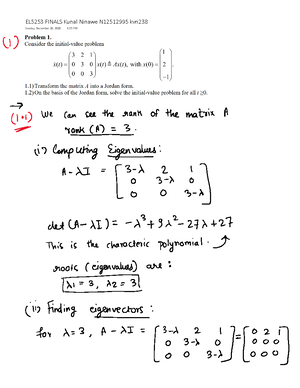 EL5253 FINALS Kunal Ninawe N12512995 knn238
Problem 1.
Consider the initial-value problem
ẋ(t) = ( 3 2 1 ; 0 3 0 ; 0 0 3 ) x(t) ≜ Ax(t), with x(0) = ( 1 ; 2 ; -1 ).
1.1) Transform the matrix A into a Jordan form.
1.2) On the basis of the Jordan form, solve the initial-value problem for all t ≥ 0.
(1)
(1.1) We can see the rank of the matrix A
rank (A) = 3.
(i) Computing Eigenvalues:
A - λI = [ 3-λ 2 1
0 3-λ 0
0 0 3-λ ]
det (A - λI) = -λ³ + 9λ² - 27λ + 27
This is the charactric polynomial.
roots (eigenvalues) are :
λ1 = 3, λ2 = 3
(ii) Finding eigenvectors :
for λ = 3, A - λI = [ 3-λ 2 1 = [ 0 2 1
0 3-λ 0 0 0 0
0 0 3-λ ] 0 0 0 ]